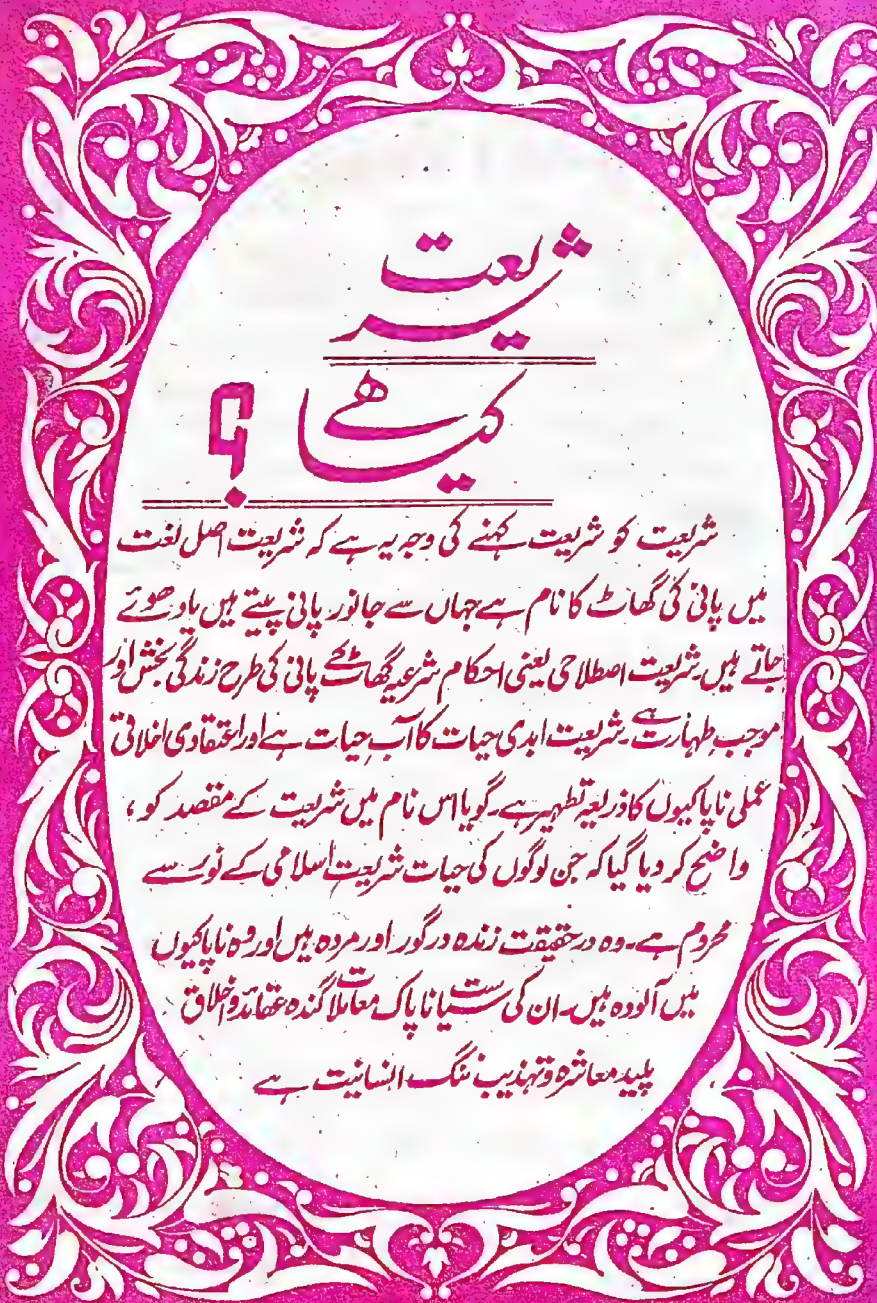 شریعت
کیا ھے ؟
شریعت کو شریعت کہنے کی وجہ یہ ہے کہ شریعت اصل لغت
میں پانی کی گھاٹ کا نام ہے جہاں سے جانور پانی پیتے ہیں یا دھوئے
جاتے ہیں۔ شریعت اصطلاحی یعنی احکام شرعیہ گھاٹ کے پانی کی طرح زندگی بخش اور
موجب طہارت ہے۔ شریعت ابدی حیات کا آبِ حیات ہے اور اعتقادی اخلاقی
عملی ناپاکیوں کا ذریعہ تطہیر ہے۔ گویا اس نام میں شریعت کے مقصد کو ،
واضح کر دیا گیا کہ جن لوگوں کی حیات شریعتِ اسلامی کے نور سے
محروم ہے۔ وہ درحقیقت زندہ درگور اور مردہ ہیں اور وہ ناپاکیوں
میں آلودہ ہیں۔ ان کی سیاست ناپاک معاملات گندہ عقائد و اخلاق
پلید معاشرہ و تہذیب ننگ انسانیت ہے